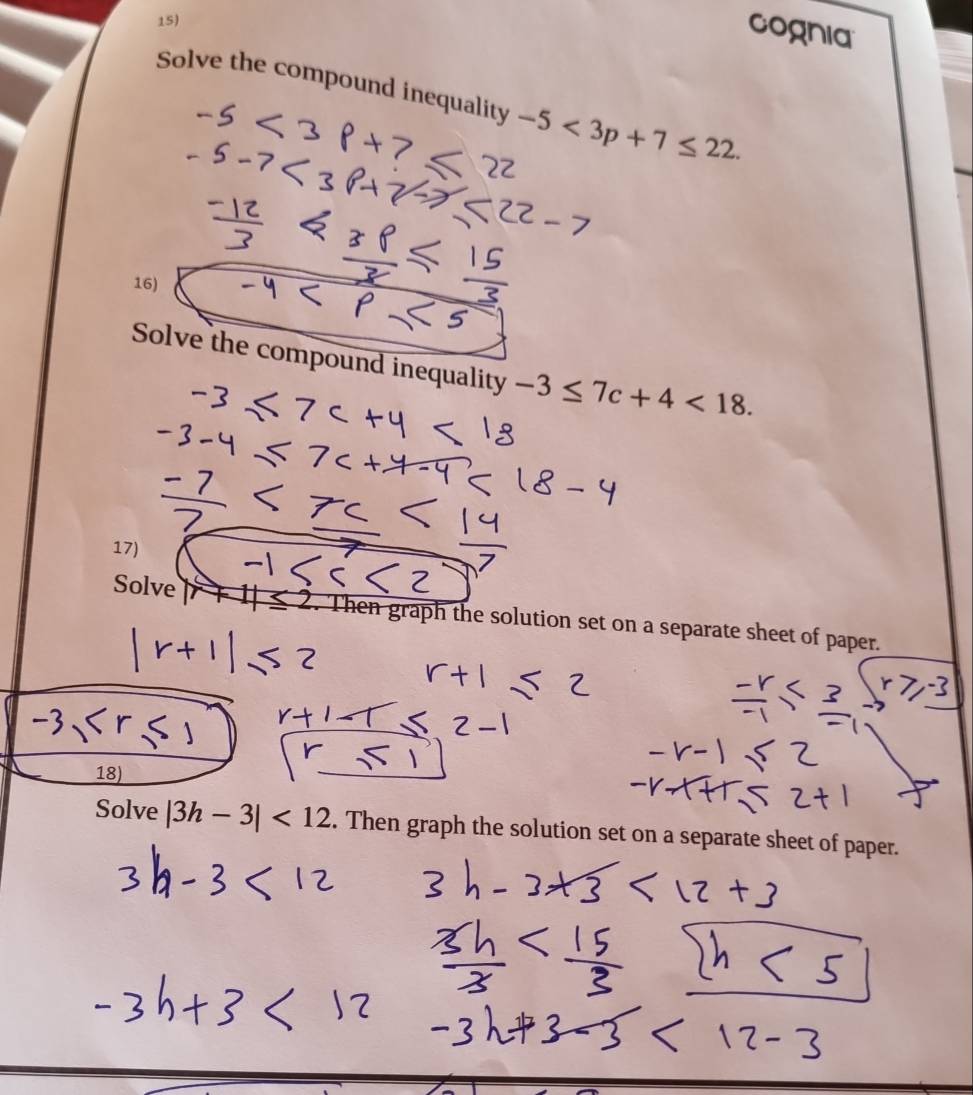 15)
cognia
Solve the compound inequality −5 < 3p + 7 ≤ 22.
-5 < 3p + 7 ≤ 22
-5-7 < 3p+7-7 ≤ 22-7
-12/3 < 3p/3 ≤ 15/3
16)
-4 < p ≤ 5
Solve the compound inequality −3 ≤ 7c + 4 < 18.
-3 ≤ 7c + 4 < 18
-3-4 ≤ 7c+4-4 < 18-4
-7/7 < 7c/7 < 14/7
17)
-1 ≤ c < 2
Solve |r + 1| ≤ 2. Then graph the solution set on a separate sheet of paper.
|r+1| ≤ 2
r+1 ≤ 2
-r/-1 ≤ 3/-1
r ≥ -3
-3 ≤ r ≤ 1
r+1-1 ≤ 2-1
-r-1 ≤ 2
r ≤ 1
-r-1+1 ≤ 2+1
18)
Solve |3h − 3| < 12. Then graph the solution set on a separate sheet of paper.
3h-3 < 12
3h-3+3 < 12+3
3h/3 < 15/3
h < 5
-3h+3 < 12
-3h+3-3 < 12-3